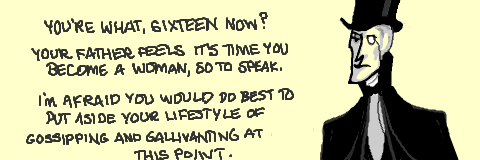 YOU'RE WHAT, SIXTEEN NOW?
YOUR FATHER FEELS IT'S TIME YOU
BECOME A WOMAN, SO TO SPEAK.
I'M AFRAID YOU WOULD DO BEST TO
PUT ASIDE YOUR LIFESTYLE OF
GOSSIPPING AND GALLIVANTING AT
THIS POINT.